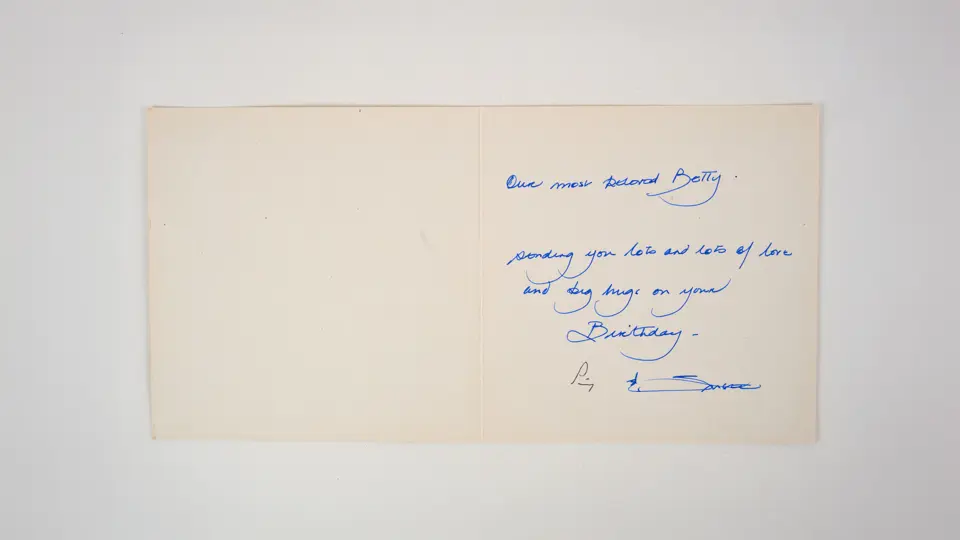 Our most beloved Betty.
sending you lots and lots of love
and big hugs on your
Birthday -
&